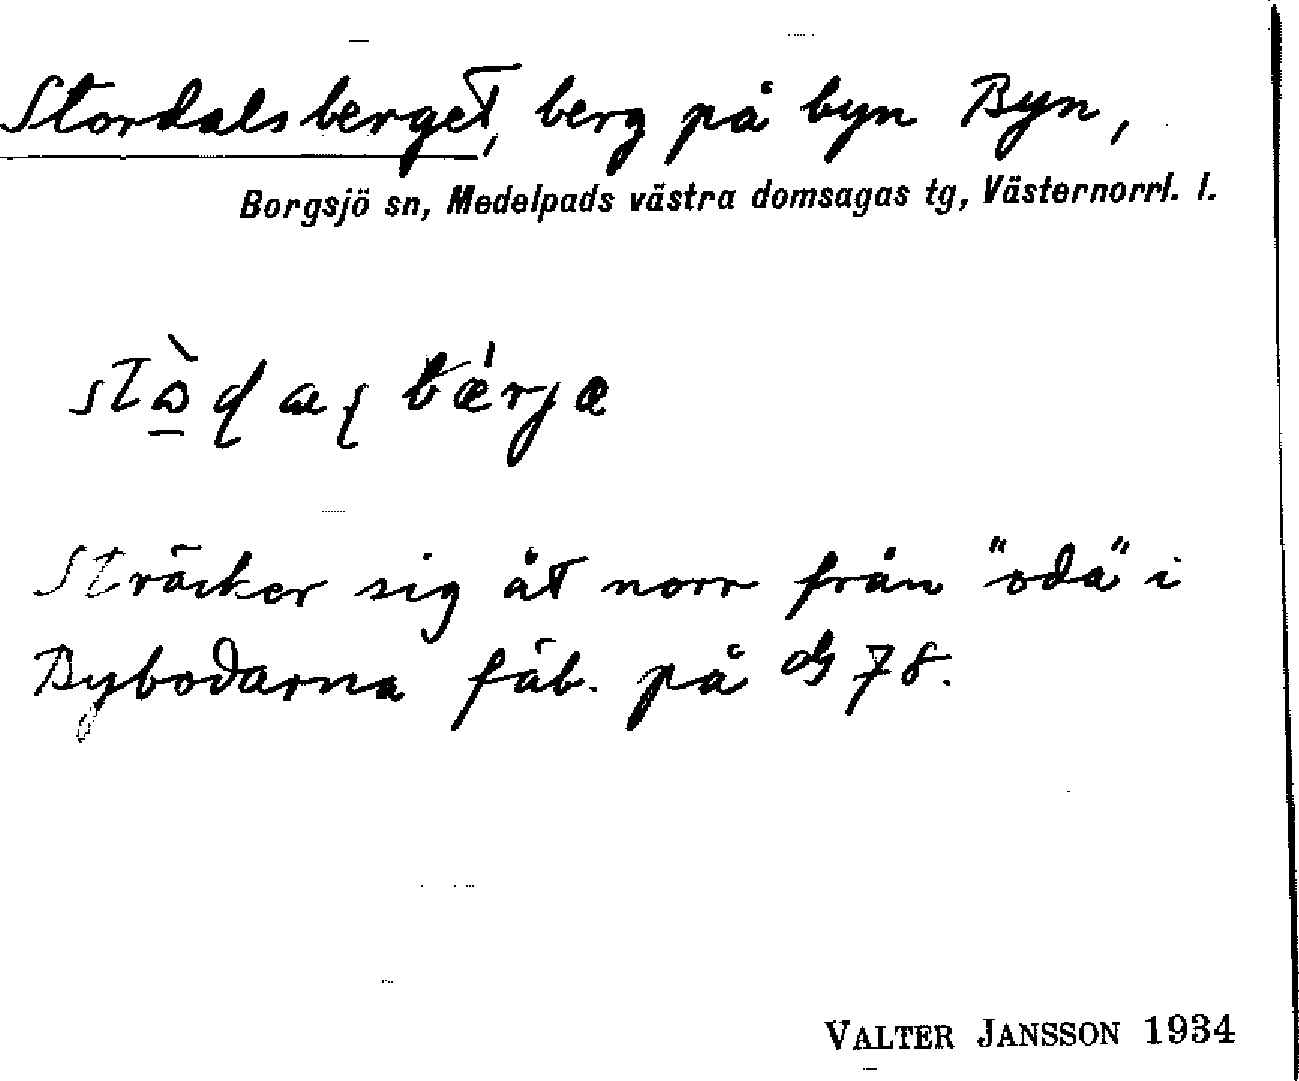 Stordalsberget, berg på byn Byn,
Borgsjö sn, Medelpads västra domsagas tg, Västernorrl. l.
Sträcker sig åt norr från "oda" i
Bybodarna fäb. på 78.
VALTER JANSSON 1934